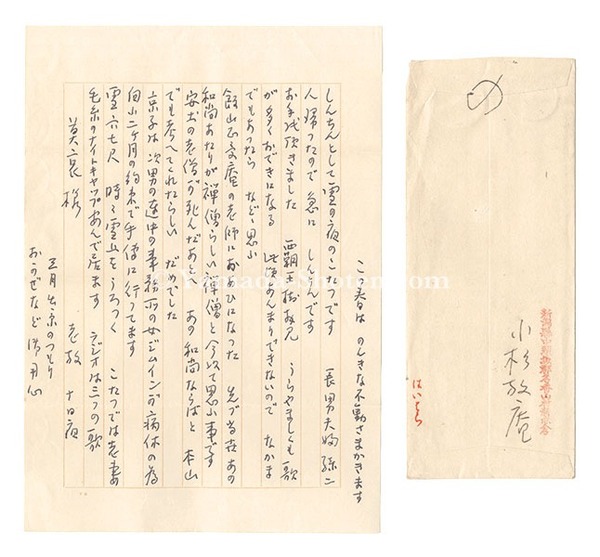 この春は のんきな不動さまかきます
しんしんとして雪の夜のこたつです 長男夫婦孫二
人帰つたので 急に しんかんです
お手紙頂きました 覇王樹拝見 うらやましくも歌
が多くおできになる 此頃あんまりできないので なかま
でもあつたら などゝ思ふ
飯山正受庵の老師におあひになつた 先づ当世あの
和尚あたりが禅僧らしい禅僧と 今以て思ふ事です
安土の老僧が死んだあと あの和尚ならばと 本山
でも考へてくれたらしい だめでした
京子は 次男の連中の事務所の女ジムインが病休の為
向ふ二ヶ月の約束で手伝に行つてます
雪六七尺 時々雪山をうろつく こたつでは老妻が
毛糸のナイトキャップあんで居ます ラジオは三つの歌
老放 十日夜
美哀様
三月出京のつもり
おかぜなど御用心
小杉放庵
はいとら
Yamada Shoten.com